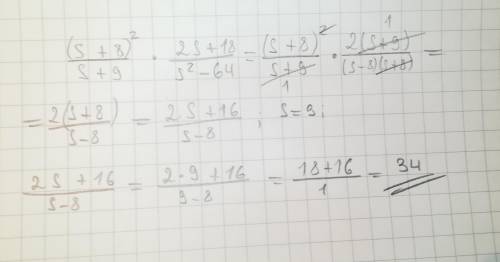 (s + 8)² / s + 9 · 2s + 18 / s² - 64 = (s + 8)² / s + 9 · 2(s + 9) / (s - 8)(s + 8) =
1 1
= 2(s + 8) / s - 8 = 2s + 16 / s - 8 ; s = 9;
2s + 16 / s - 8 = 2 · 9 + 16 / 9 - 8 = 18 + 16 / 1 = 34